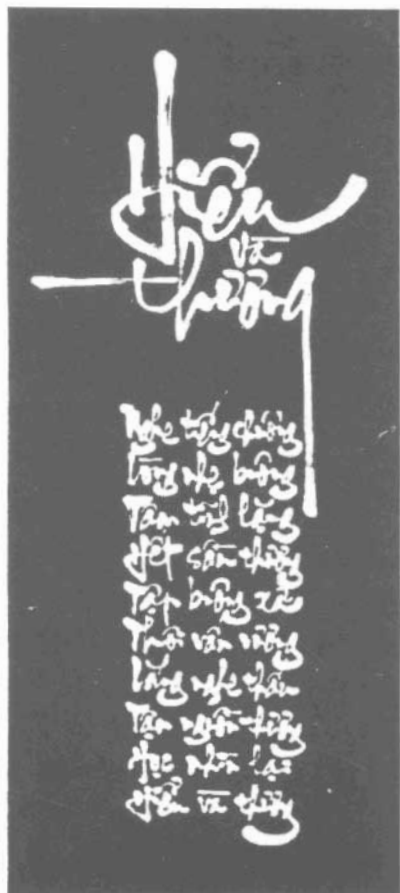 Hiểu
và
thương
Nghe tiếng chuông
Lòng nhẹ buông
Tâm tĩnh lặng
Hết sầu thương
Tập buông xả
Thôi vấn vương
Lắng nghe thấu
Tận nguồn
Học nhìn lại
Hiểu và thương